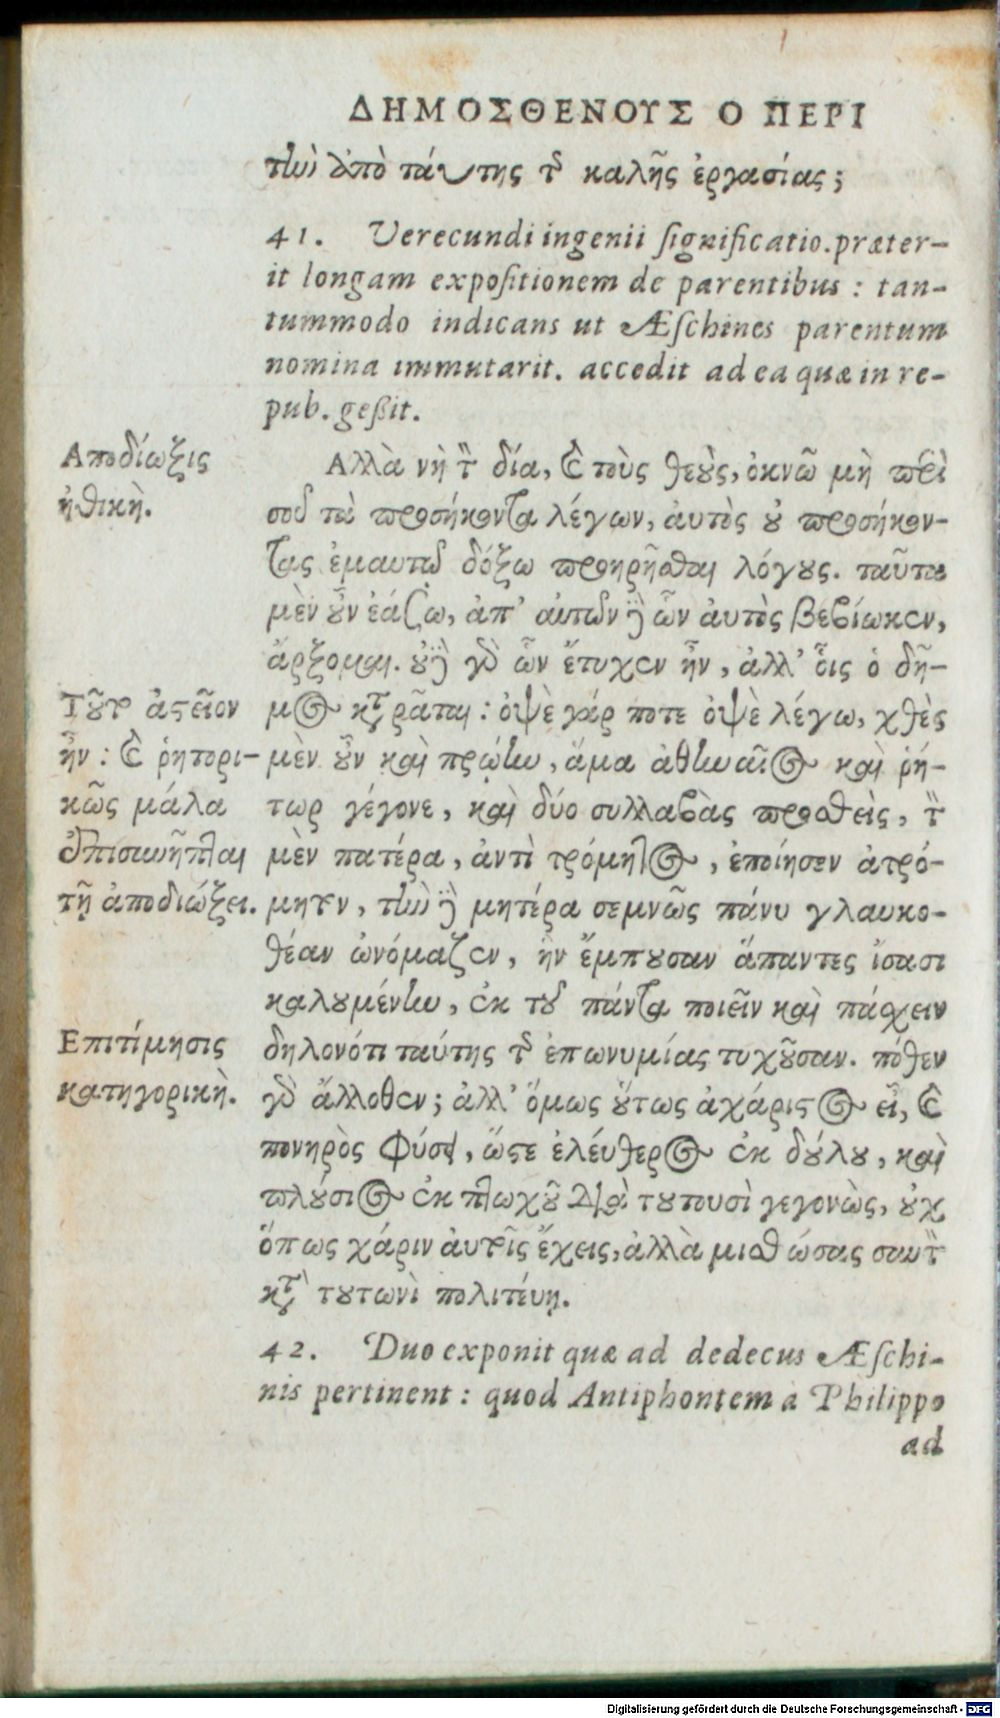 ΔΗΜΟΣΘΕΝΟΥΣ Ο ΠΕΡΙ
τὴν ἀπὸ ταύτης τῆς καλῆς ἐργασίας;
41. Verecundi ingenii ſignificatio. præter-
it longam expoſitionem de parentibus : tan-
tummodo indicans ut Æſchines parentum
nomina immutarit. accedit ad ea quæ in re-
pub. geßit.
Αποδίωξις
ἠθικὴ.
Αλλὰ νὴ τὸν δία, καὶ τοὺς θεοὺς, ὀκνῶ μὴ περὶ
σοῦ τὰ προσήκοντα λέγων, αὐτὸς οὐ προσήκον-
τας ἐμαυτῷ δόξω προῃρῆσθαι λόγους. ταῦτα
μὲν οὖν ἐάσω, ἀπ’ αὐτῶν δὲ ὧν αὐτὸς βεβίωκεν,
ἄρξομαι. οὐδὲ γὰρ ὧν ἔτυχεν ἦν, ἀλλ’ οἷς ὁ δῆ-
μος καταρᾶται : ὀψὲ γάρ ποτε ὀψὲ λέγω, χθὲς
μὲν οὖν καὶ πρώην, ἅμα ἀθηναῖος καὶ ῥή-
τωρ γέγονε, καὶ δύο συλλαβὰς προσθεὶς, τὸν
μὲν πατέρα, ἀντὶ τρόμητος, ἐποίησεν ἀτρό-
μητον, τὴν δὲ μητέρα σεμνῶς πάνυ γλαυκο-
θέαν ὠνόμαζεν, ἣν ἔμπουσαν ἅπαντες ἴσασι
καλουμένην, ἐκ τοῦ πάντα ποιεῖν καὶ πάσχειν
δηλονότι ταύτης τῆς ἐπωνυμίας τυχοῦσαν. πόθεν
γὰρ ἄλλοθεν; ἀλλ’ ὅμως οὕτως ἀχάριστος εἶ, καὶ
πονηρὸς φύσει, ὥστε ἐλεύθερος ἐκ δούλου, καὶ
πλούσιος ἐκ πτωχοῦ διὰ τουτουσὶ γεγονὼς, οὐχ
ὅπως χάριν αὐτοῖς ἔχεις, ἀλλὰ μισθώσας σαυτὸν
κατὰ τουτωνὶ πολιτεύῃ.
Τοῦτο ἀστεῖον
ἦν : καὶ ῥητορι-
κῶς μάλα
ἐπισυνῆπται
τῇ ἀποδιώξει.
Επιτίμησις
κατηγορικὴ.
42. Duo exponit quæ ad dedecus Æſchi-
nis pertinent : quod Antiphontem à Philippo
ad
Digitalisierung gefördert durch die Deutsche Forschungsgemeinschaft - DFG